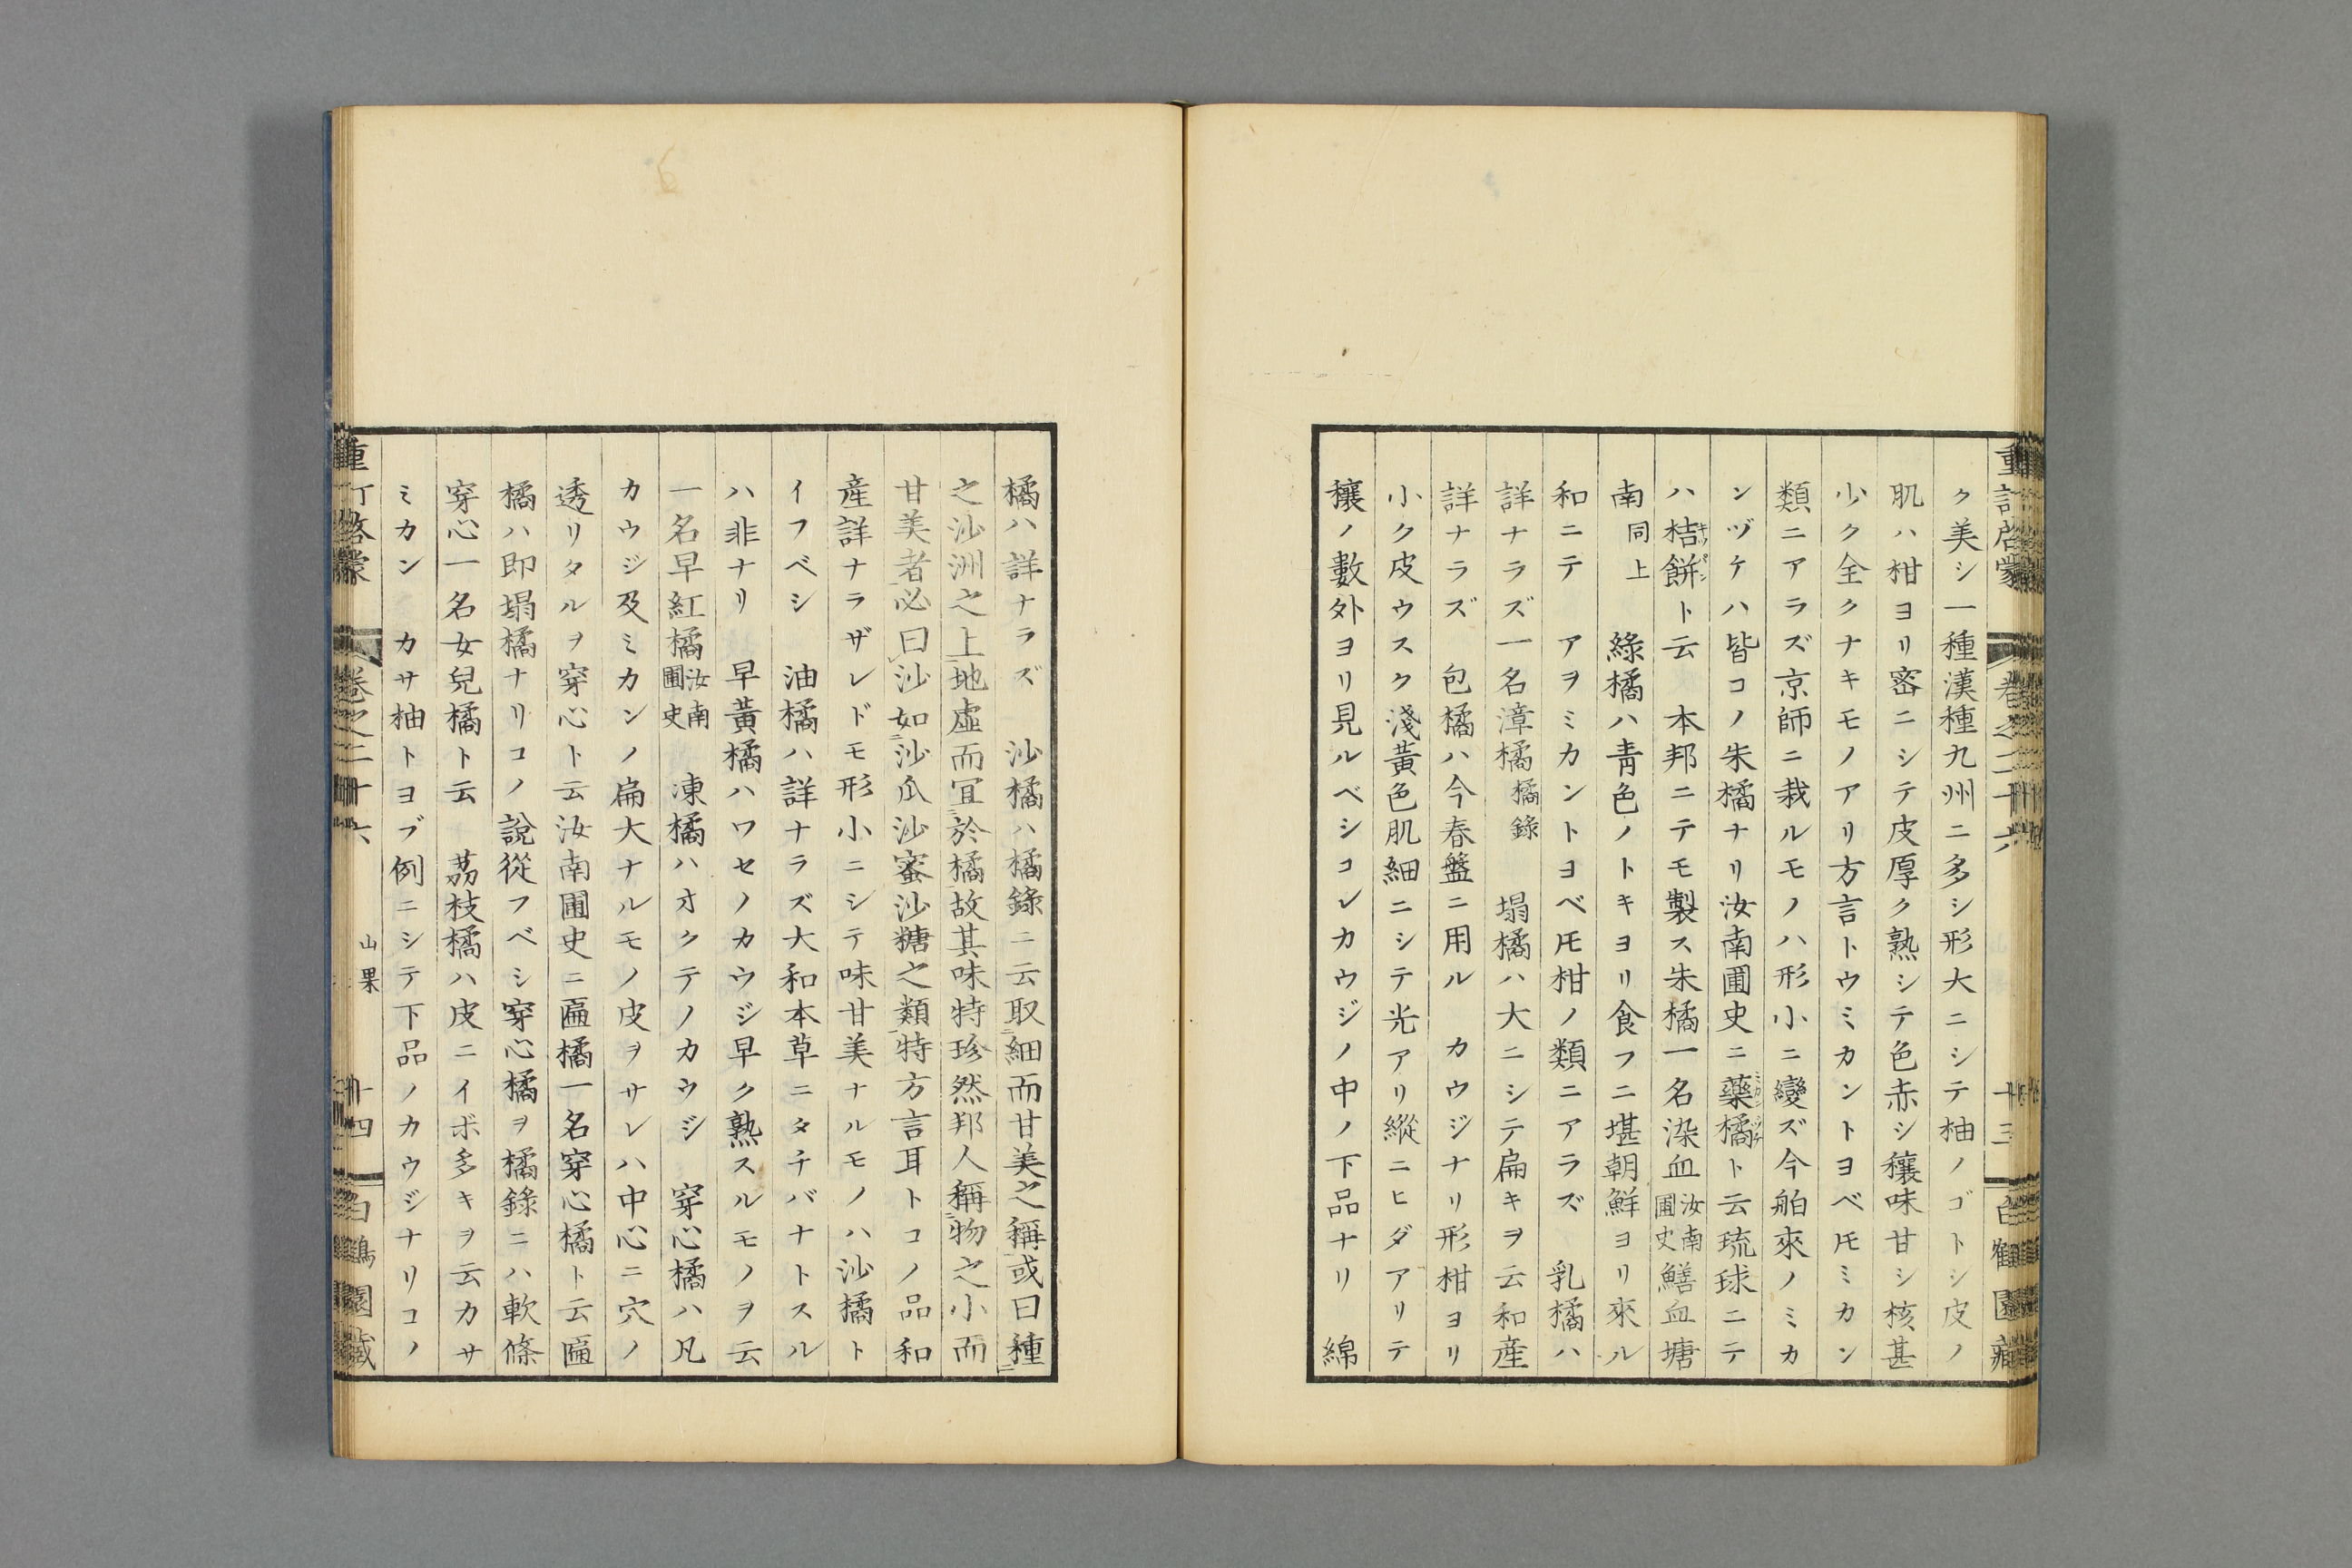 重訂啓蒙 卷之二十六 十三
ク美シ一種漢種九州ニ多シ形大ニシテ柚ノゴトシ皮ノ
肌ハ柑ヨリ密ニシテ皮厚ク熟シテ色赤シ穰味甘シ核甚
少ク全クナキモノアリ方言トウミカントヨベ𪜈ミカン
類ニアラズ京師ニ栽ルモノハ形小ニ變ズ今舶來ノミカ
ンヅケハ皆コノ朱橘ナリ汝南圃史ニ藥橘ト云琉球ニテ
ハ桔餅キツパント云 本邦ニテモ製ス朱橘一名染血汝南圃史鱔血塘
南同上 綠橘ハ靑色ノトキヨリ食フニ堪朝鮮ヨリ來ル
和ニテ アヲミカントヨベ𪜈柑ノ類ニアラズ 乳橘ハ
詳ナラズ一名漳橘橘錄 塌橘ハ大ニシテ扁キヲ云和産
詳ナラズ 包橘ハ今春盤ニ用ル カウジナリ形柑ヨリ
小ク皮ウスク淺黃色肌細ニシテ光アリ縱ニヒダアリテ
穰ノ數外ヨリ見ルベシコレカウジノ中ノ下品ナリ 綿
橘ハ詳ナラズ 沙橘ハ橘錄ニ云取細而甘美之稱或曰種
之沙洲之上地虛而宜於橘故其味特珍然邦人稱物之小而
甘美者必曰沙如沙瓜沙蜜沙糖之類特方言耳トコノ品和
産詳ナラザレドモ形小ニシテ味甘美ナルモノハ沙橘ト
イフベシ 油橘ハ詳ナラズ大和本草ニタチバナトスル
ハ非ナリ 早黃橘ハワセノカウジ早ク熟スルモノヲ云
一名早紅橘汝南圃史 凍橘ハオクテノカウジ 穿心橘ハ凡
カウジ及ミカンノ扁大ナルモノ皮ヲサレハ中心ニ穴ノ
透リタルヲ穿心ト云汝南圃史ニ匾橘一名穿心橘ト云匾
橘ハ即塌橘ナリコノ說從フベシ穿心橘ヲ橘錄ニハ軟條
穿心一名女兒橘ト云 荔枝橘ハ皮ニイボ多キヲ云カサ
ミカン カサ柚トヨブ例ニシテ下品ノカウジナリコノ
卷之二十六 山果 十四